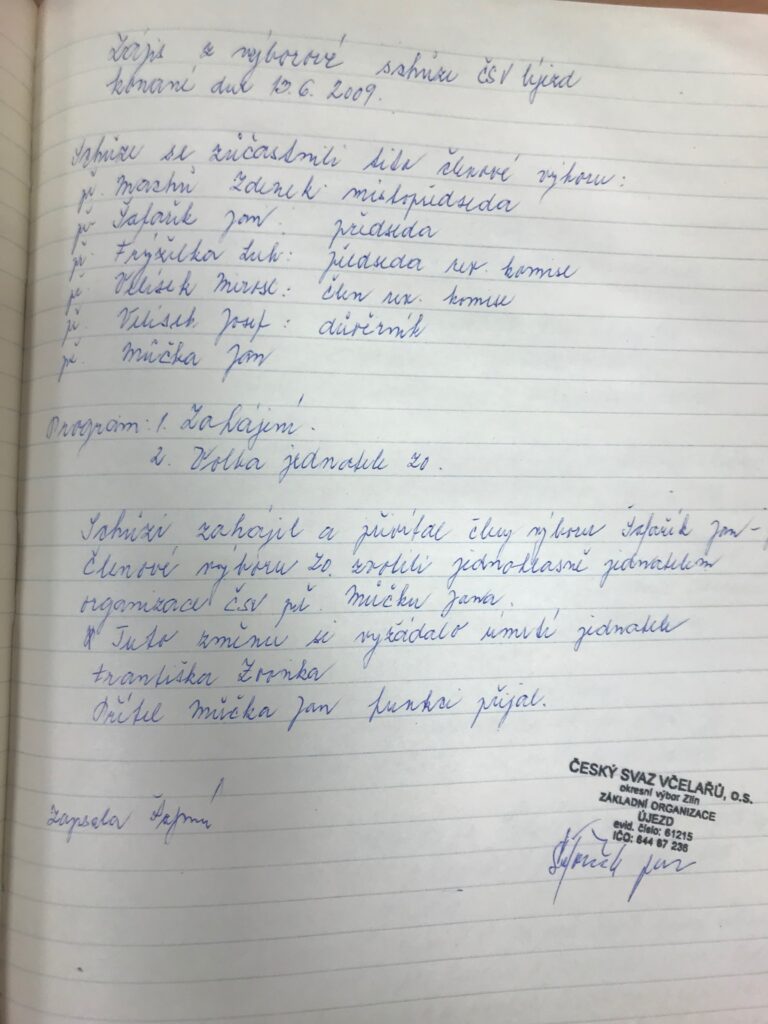 Zápis z výborové schůze ČSV Újezd
konané dne 13.6. 2009.
Schůze se zúčastnili tito členové výboru:
př. Machů Zdenek: místopředseda
př. Šafařík Jan: předseda
př. Fryželka Luk: předseda rev. komise
př. Velísek Mirosl: člen rev. komise
př. Velísek Josef: důvěrník
př. Můčka Jan
Program: 1. Zahájení.
2. Volba jednatele ZO.
Schůzi zahájil a přivítal členy výboru Šafařík Jan -
Členové výboru ZO. zvolili jednohlasně jednatelem
organizace ČSV př. Můčku Jana.
Tuto změnu si vyžádalo úmrtí jednatele
Františka Zvonka
Přítel Můčka Jan funkci přijal.
ČESKÝ SVAZ VČELAŘŮ, o.s.
okresní výbor Zlín
ZÁKLADNÍ ORGANIZACE
ÚJEZD
evid. číslo: 61215
IČO: 644 67 236
Zapsala
Šafařík Jan